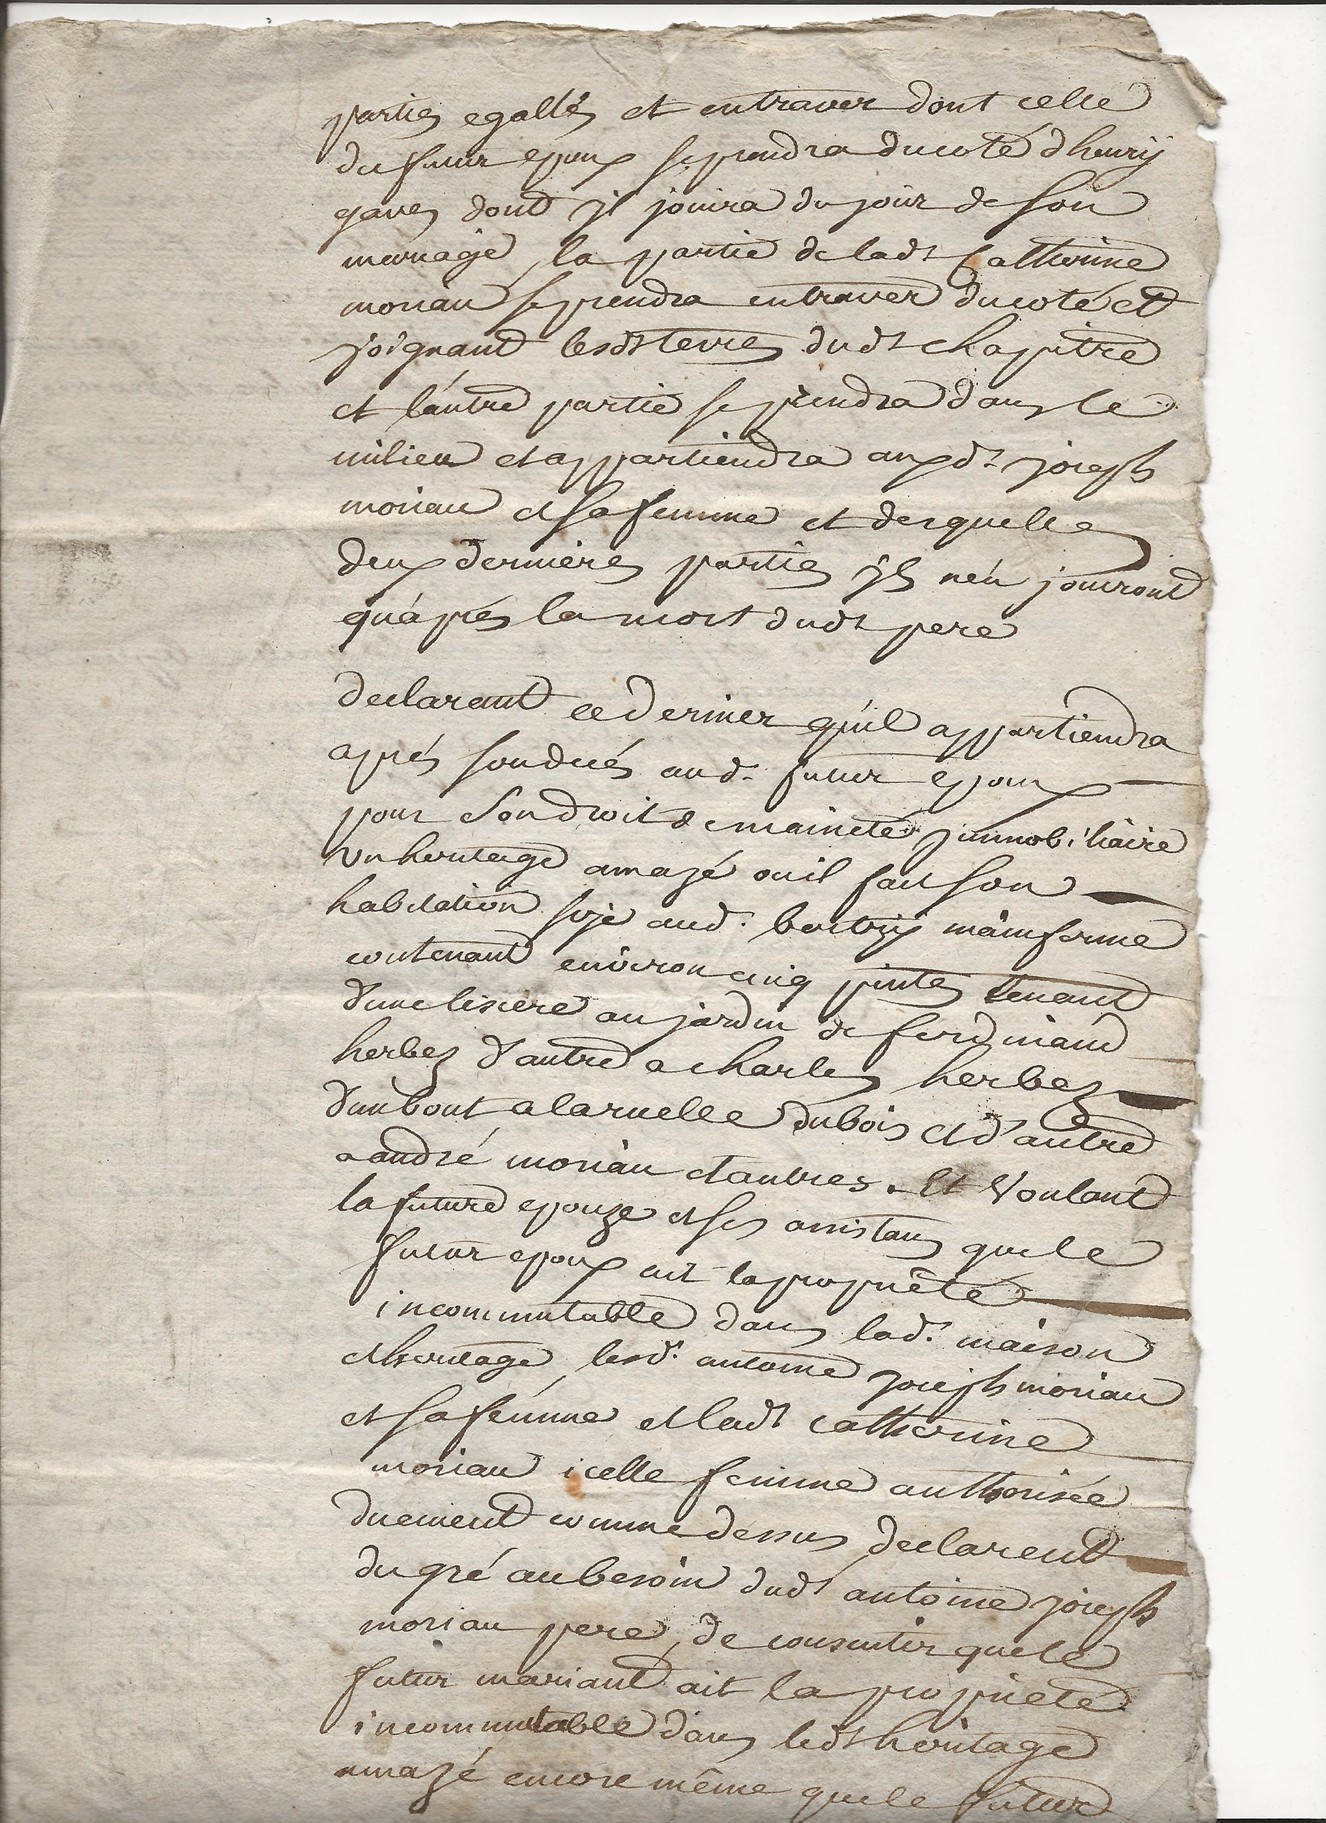 parties egalles et entraver dont celle
du futur epoux se prendra du coté d'henry
gaves dont jl jouira du jour de son
mariage, la partie de lad.t Catherine
moriau se prendra entraver du coté et
joignant lesd.ts terres dud.t chapitre
et l'autre partie se prendra dans le
milieu et appartiendra auxd.t joseph
moriau et sa femme et desquelles
deux dernieres parties jls n'en jouiront
qu'aprés la mort dud.t pere
declarant ce dernier qu'il appartiendra
aprés son decés aud.t futur epoux
pour son droit de maineté jmmobiliaire
un heritage amazé ou il fait son
habitation size aud.t mainferme
contenant environ cinq pintes tenant
d'une lisiere au jardin de ferdinand
herbez d'autre a charles herbez
d'un bout a la ruelle du bois et d'autre
a andré moriau et autres. Et Voulant
la future epouze et ses assistans que le
futur epoux ait la propriété
incommutable dans lad.t maison
et heritage, lesd.t antoine joseph moriau
et sa femme et lad.t catherine
moriau icelle femme authorisée
duement comme dessus declarent
du gré au besoin dud.t antoine joseph
moriau pere, de consentir que le
futur mariant ait la propriete
incommutable dans led.t heritage
amazé encore même que le futur